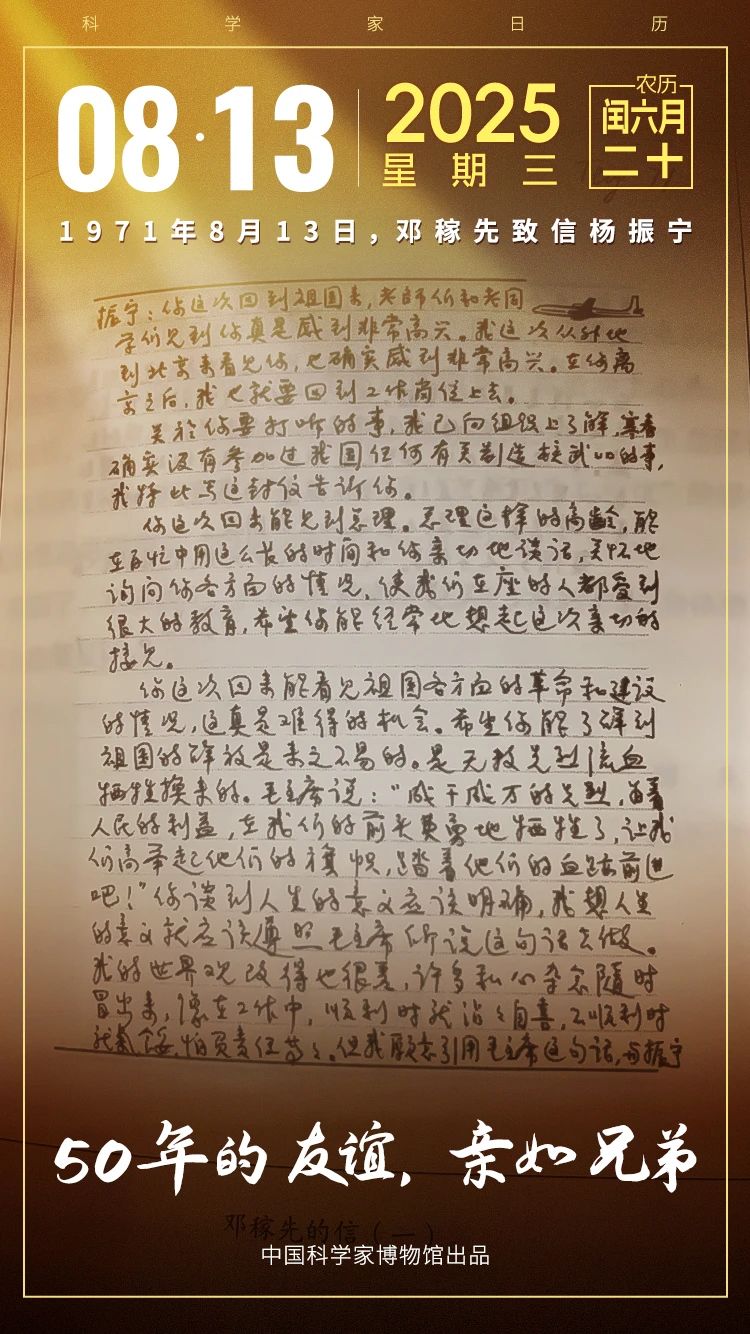 科学家日历
08·13
2025
星期三
农历
闰六月
二十
1971年8月13日，邓稼先致信杨振宁
振宁：你这次回到祖国来，老师们和老同
学们见到你真是感到非常高兴。我这次从外地
到北京来看见你，也确实感到非常高兴。在你离
京之后，我也就要回到工作岗位上去。
关于你要打听的事，我已向组织上了解，寒春
确实没有参加过我国任何有关制造核武四的事，
我特此写这封信告诉你。
你这次回来能见到总理。总理这样的高龄，能
在百忙中用这么长的时间和你亲切地谈话，关怀地
询问你各方面的情况，使我们在座的人都受到
很大的教育，希望你能经常地想起这次亲切的
接见。
你这次回来能看见祖国各方面的革命和建设
的情况，这真是难得的机会。希望你能了解到
祖国的解放是来之不易的。是无数先烈流血
牺牲换来的。毛主席说：“成千成万的先烈，为着
人民的利益，在我们的前头英勇地牺牲了，让我
们高举起他们的旗帜，踏着他们的血迹前进
吧！”你谈到人生的意义应该明确，我想人生
的意义就应该遵照毛主席所说这句话去做。
我的世界观改得也很差，许多私心杂念随时
冒出来，像在工作中，顺利时就沾沾自喜，不顺利时
就气馁，怕负责任等等。但我愿意引用毛主席这句话，与振宁
50年的友谊，亲如兄弟
邓稼先的信（一）
中国科学家博物馆出品